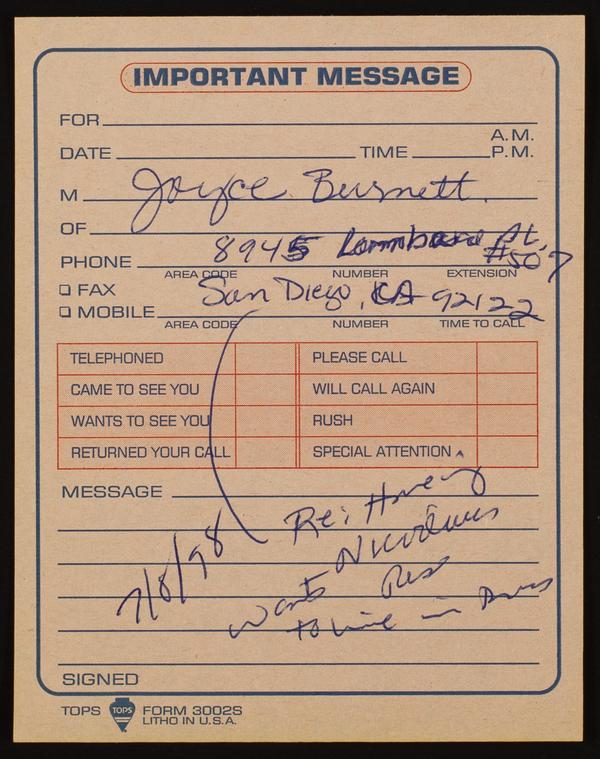 IMPORTANT MESSAGE
FOR
A.M.
DATE TIME P.M.
M Joyce Burnett.
OF
8945 Lombard Pl.
PHONE #507
AREA CODE NUMBER EXTENSION
☐ FAX San Diego, CA 92122
☐ MOBILE
AREA CODE NUMBER TIME TO CALL
TELEPHONED PLEASE CALL
CAME TO SEE YOU WILL CALL AGAIN
WANTS TO SEE YOU RUSH
RETURNED YOUR CALL SPECIAL ATTENTION
MESSAGE
Re:
7/8/98
wants
to live in
SIGNED
TOPS TOPS FORM 3002S
LITHO IN U.S.A.